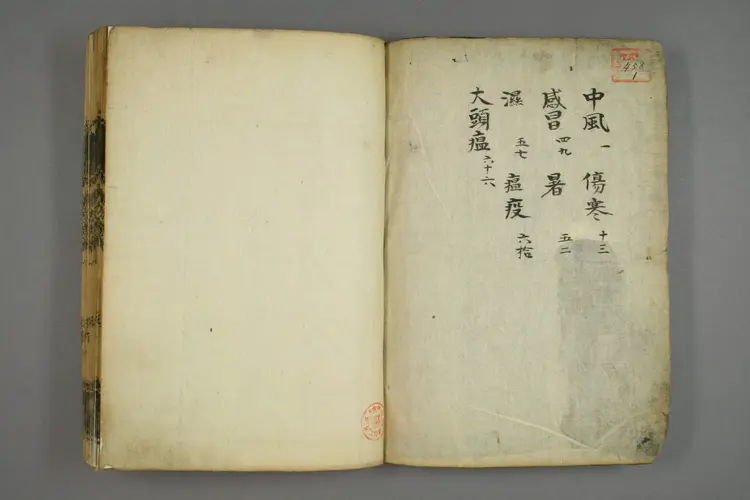 中風 一 傷寒 十三
感冒 四九 暑 五二
濕 五七 瘟疫 六拾
大頭瘟 六十六
458
1